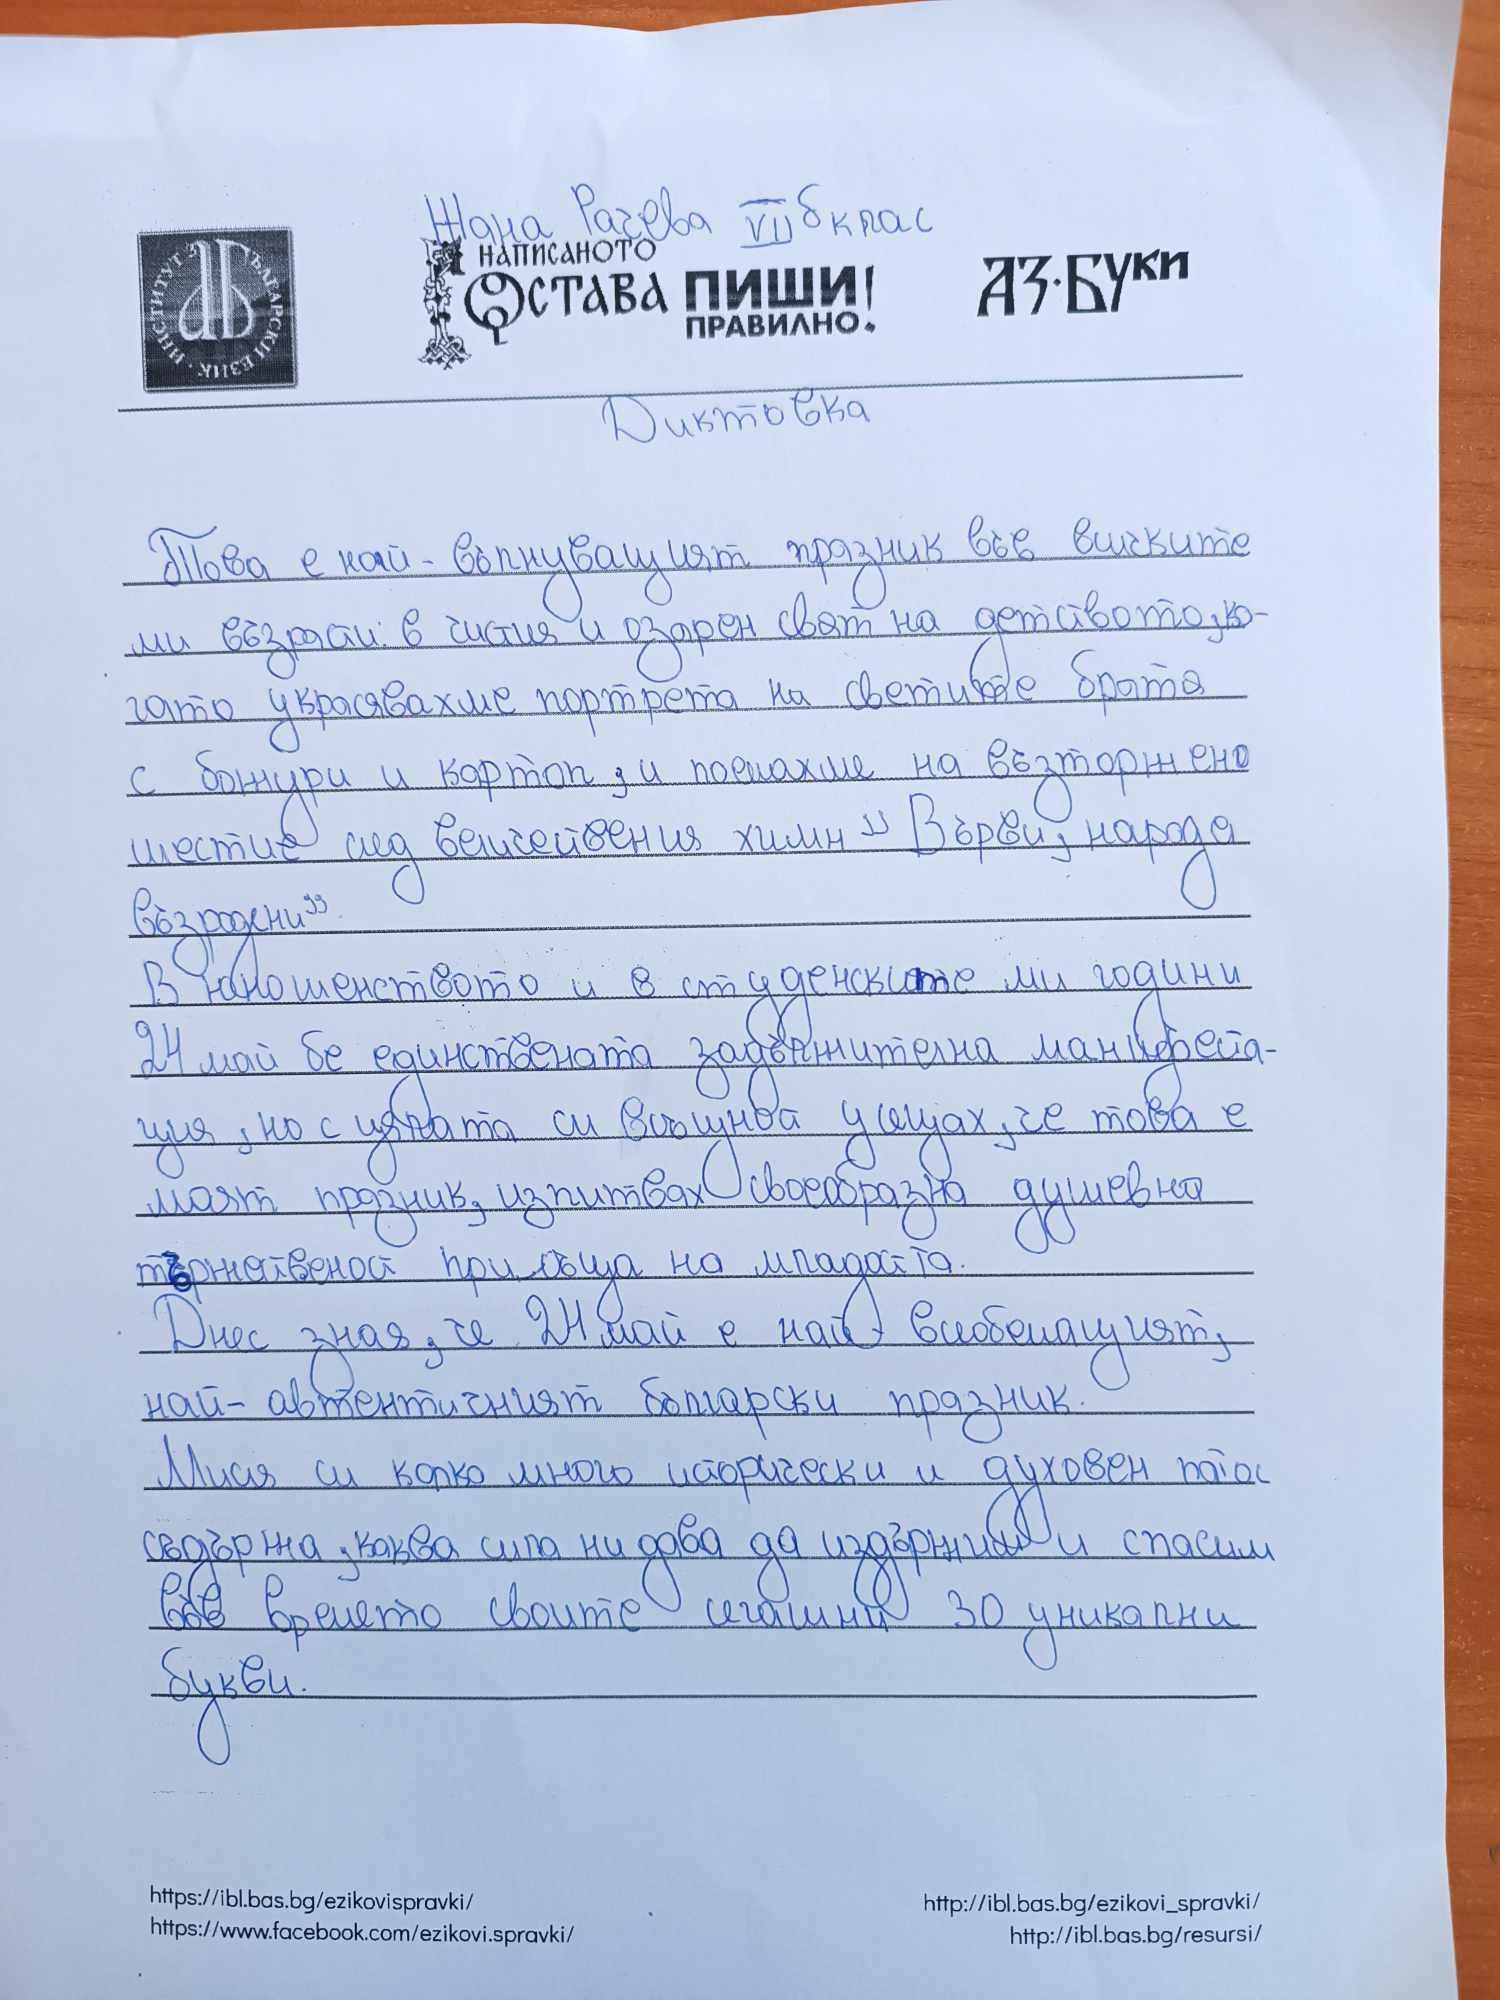 Жана Рачева VII б клас
ИНСТИТУТ ЗА БЪЛГАРСКИ ЕЗИК
НАПИСАНОТО
ОСТАВА ПИШИ
ПРАВИЛНО!
АЗ·БУКИ
Диктовка
Това е най-вълнуващият празник във всичките
ми възрасти: в чистия и озарен свят на детството, ко-
гато украсявахме портрета на светите братя
с божури и картоп, и поемахме на възторжено
шестие след величествения химн „Върви, народе
възродени”.
В юношенството и в студенските ми години
24 май бе единствената задължителна манифеста-
ция, но с цялата си всъщност усещах, че това е
моят празник, изпитвах своеобразна душевна
тържественост при съща на младостта.
Днес зная, че 24 май е най-всеобемащият,
най-автентичният български празник.
Мисля си колко много исторически и духовен патос
съдържа, каква сила ни дава да издържим и спасим
във времето своите сегашни 30 уникални
букви.
https://ibl.bas.bg/ezikovispravki/
https://www.facebook.com/ezikovi.spravki/
http://ibl.bas.bg/ezikovi_spravki/
http://ibl.bas.bg/resursi/